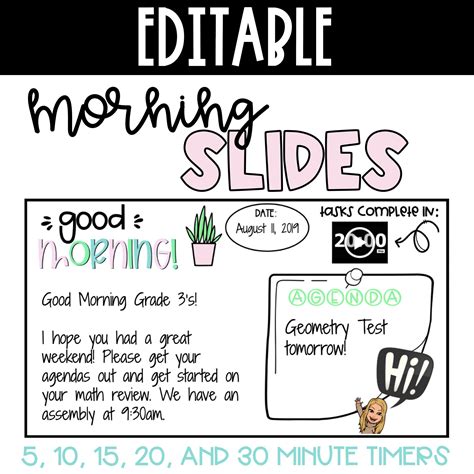 EDITABLE
morning
SLIDES
good
MORNING!
DATE:
August 11, 2019
TASKS COMPLETE IN:
20:00
Good Morning Grade 3's!
I hope you had a great
weekend! Please get your
agendas out and get started on
your math review. We have an
assembly at 9:30am.
AGENDA
Geometry Test
tomorrow!
Hi!
5, 10, 15, 20, AND 30 MINUTE TIMERS